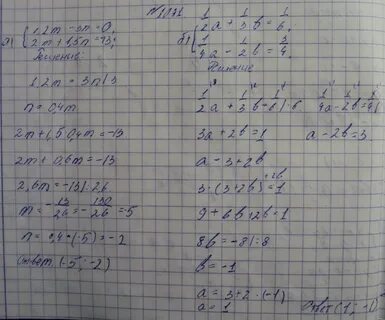 №1071
а) { 1,2m - 3n = 0;
2m + 1,5n = -13;
Решение
1,2m = 3n | :3
n = 0,4m
2m + 1,5·0,4m = -13
2m + 0,6m = -13
2,6m = -13 | :2,6
m = -13/2,6 = -130/26 = -5
n = 0,4·(-5) = -2
Ответ. (-5; -2)
б) { 1/2 a + 1/3 b = 1/6;
1/4 a - 2b = 3/4.
Решение
1/2 a + 1/3 b = 1/6 | ·6
3a + 2b = 1
a = 3 + 2b
9 + 6b + 2b = 1
8b = -8 | :8
b = -1
a = 3 + 2·(-1)
a = 1
a - 2b = 3
Ответ (1; -1)